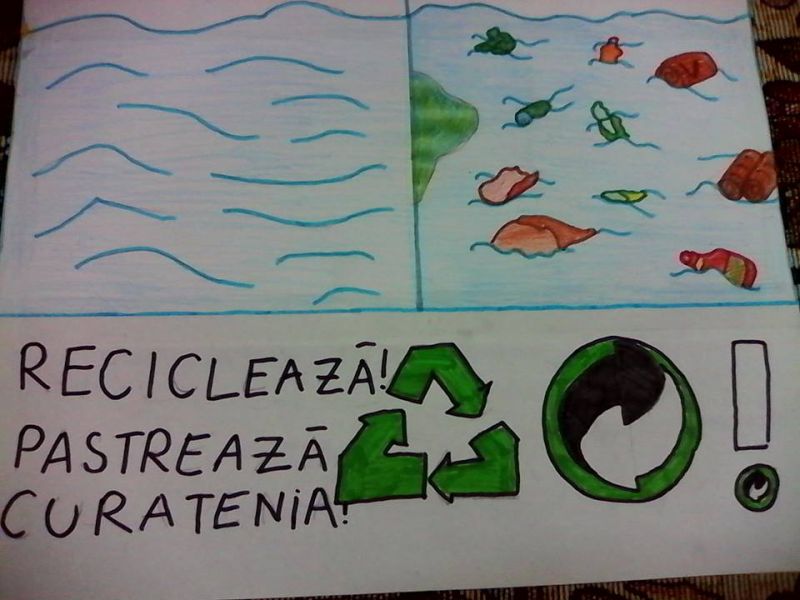 RECICLEAZĂ!
PASTREAZĂ
CURATENIA!